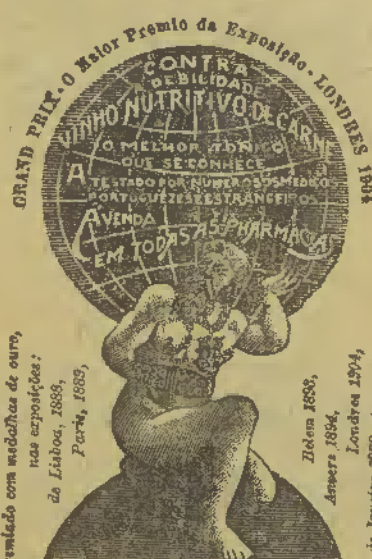 GRAND PRIX - O Maior Premio da Exposição - LONDRES 1904
CONTRA
DEBILIDADE
VINHO NUTRITIVO DE CARNE
O MELHOR TONICO
QUE SE CONHECE
ATTESTADO POR NUMEROSOS MEDICOS
PORTUGUEZES E ESTRANGEIROS
Á VENDA
EM TODAS AS PHARMACIAS
com medalhas de ouro,
nas exposições:
de Lisboa, 1888,
Paris, 1889,
Belem 1893,
Anvers 1894,
Londres 1904,